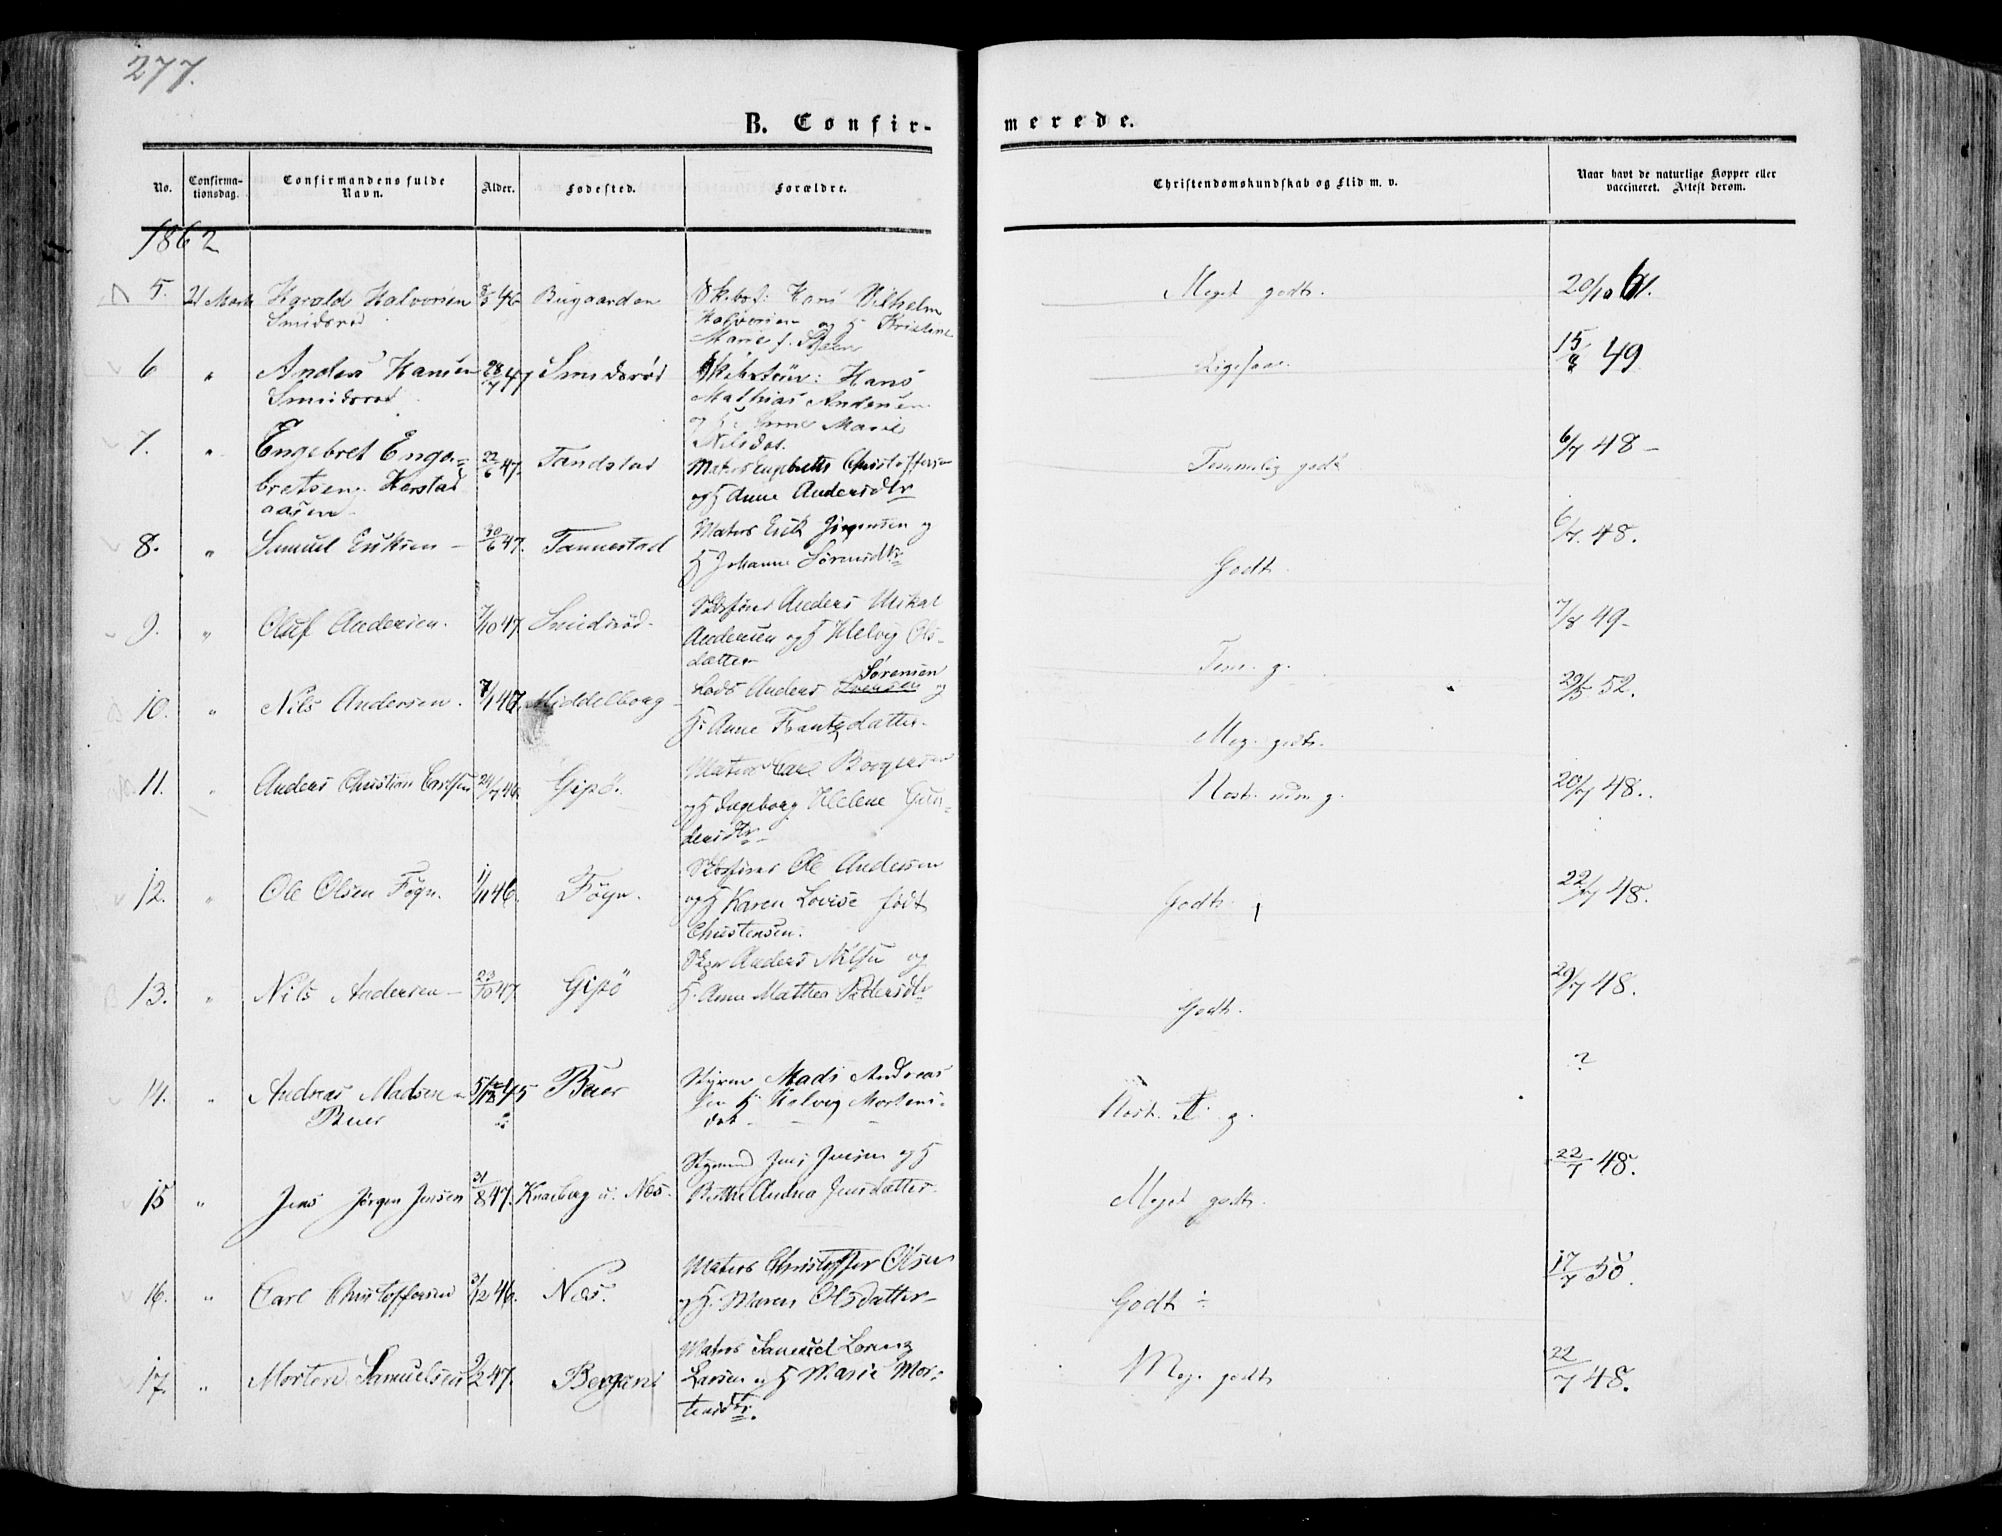 277.
B. Confirmerede.
No. Confirmationsdag. Confirmandens fulde Navn. Alder. Fødested. Forældre. Christendomskundskab og Flid m. v. Naar havt de naturlige Kopper eller vaccineret. Attest derom.
1862
5. 21 Marts Harald Halvorsen 46 Bugaarden Hans Vilhelm Meget godt. 20/10 61.
Smidsrød Halvorsen og H Kristine
Marie f.
6 " Anders Hansen 28/7 47 Smidsrød Hans Ligesaa. 15/8 49
Smidsrød Mathias Andersen
og H: Anne Marie
Nilsdat.
7. " Engebret Engebretsen 22/6 47. Tandstad Matros Engebrett Christoffersen Temmelig godt 6/7 48 -
Horstadaasen og H Anne Andersdtr
8. " Samuel Eriksen - 30/6 47. Tannestad Matros Erik Jørgensen og Godt. 6/7. 48.
H Johanne Sørensdtr
9. " Oluf Andersen. 7/10 47. Smidsrød. Anders Mikal Tem. g. 7/8 49 -
Andersen og H Helvig Olsdatter
10. " Nils Andersen. 47. Middelborg Lods Anders Sørensen og Meg. godt. 29/5 52.
H: Anne Frantzdatter.
11. " Anders Christian Carlsen 24/7 46. Gipø. Matros Carl Borgersen Nost. num g. 20/7 48.
og H Ingeborg Helene Gundersdtr
12. " Ole Olsen Føyn. 1/11 46. Føyn. Ole Andersen Godt. 22/7 48.
og H Karen Lovise født
Christensen.
13. " Nils Andersen - 23/10 47 Gipø Anders Nilsen og Godt. 20/7 48.
H. Anne Mathea Pedersdtr
14. " Andreas Madsen 45 Buer Styrm Mads Andreas ?
Buer H: Helvig Mortensdat.
15 " Jens Jørgen Jensen 31/8 47. Knarberg u. Nes. Styrmd Jens Jensen og H Meget godt. 22/7 48.
Berthe Andrea Jensdatter.
16. " Carl Christoffersen 46. Nes. Matros Christoffer Olsen Godt ÷ 17/7 50.
og H: Maren Olsdatter
17. " Morten Samuelsen 9/2 47. Bergani Matros Samuel Lorenz Meg. godt 22/7 48.
Larsen og H Marie Mortensdtr.